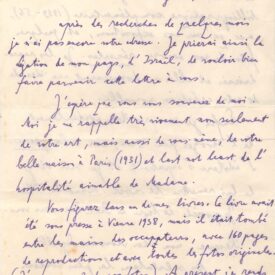 après des recherches de quelques mois
je n'ai pas encore votre adresse. Je prierai ainsi la
légation de mon pays, d'Israel, de vouloir bien
faire parvenir cette lettre à vous.
J'espère que vous vous souvenez de moi.
Moi je me rappelle très vivement non seulement
de votre art, mais aussi de vous même, de votre
belle maison à Paris (1931) et last not least de l'
hospitalité aimable de Madame.
Vous figurez dans un de mes livres: le livre avait
été sous presse à Vienne 1938, mais il était tombé
entre les mains des occupateurs, avec 160 pages
de reproductions et avec toutes les fotos originales
A présent je rends